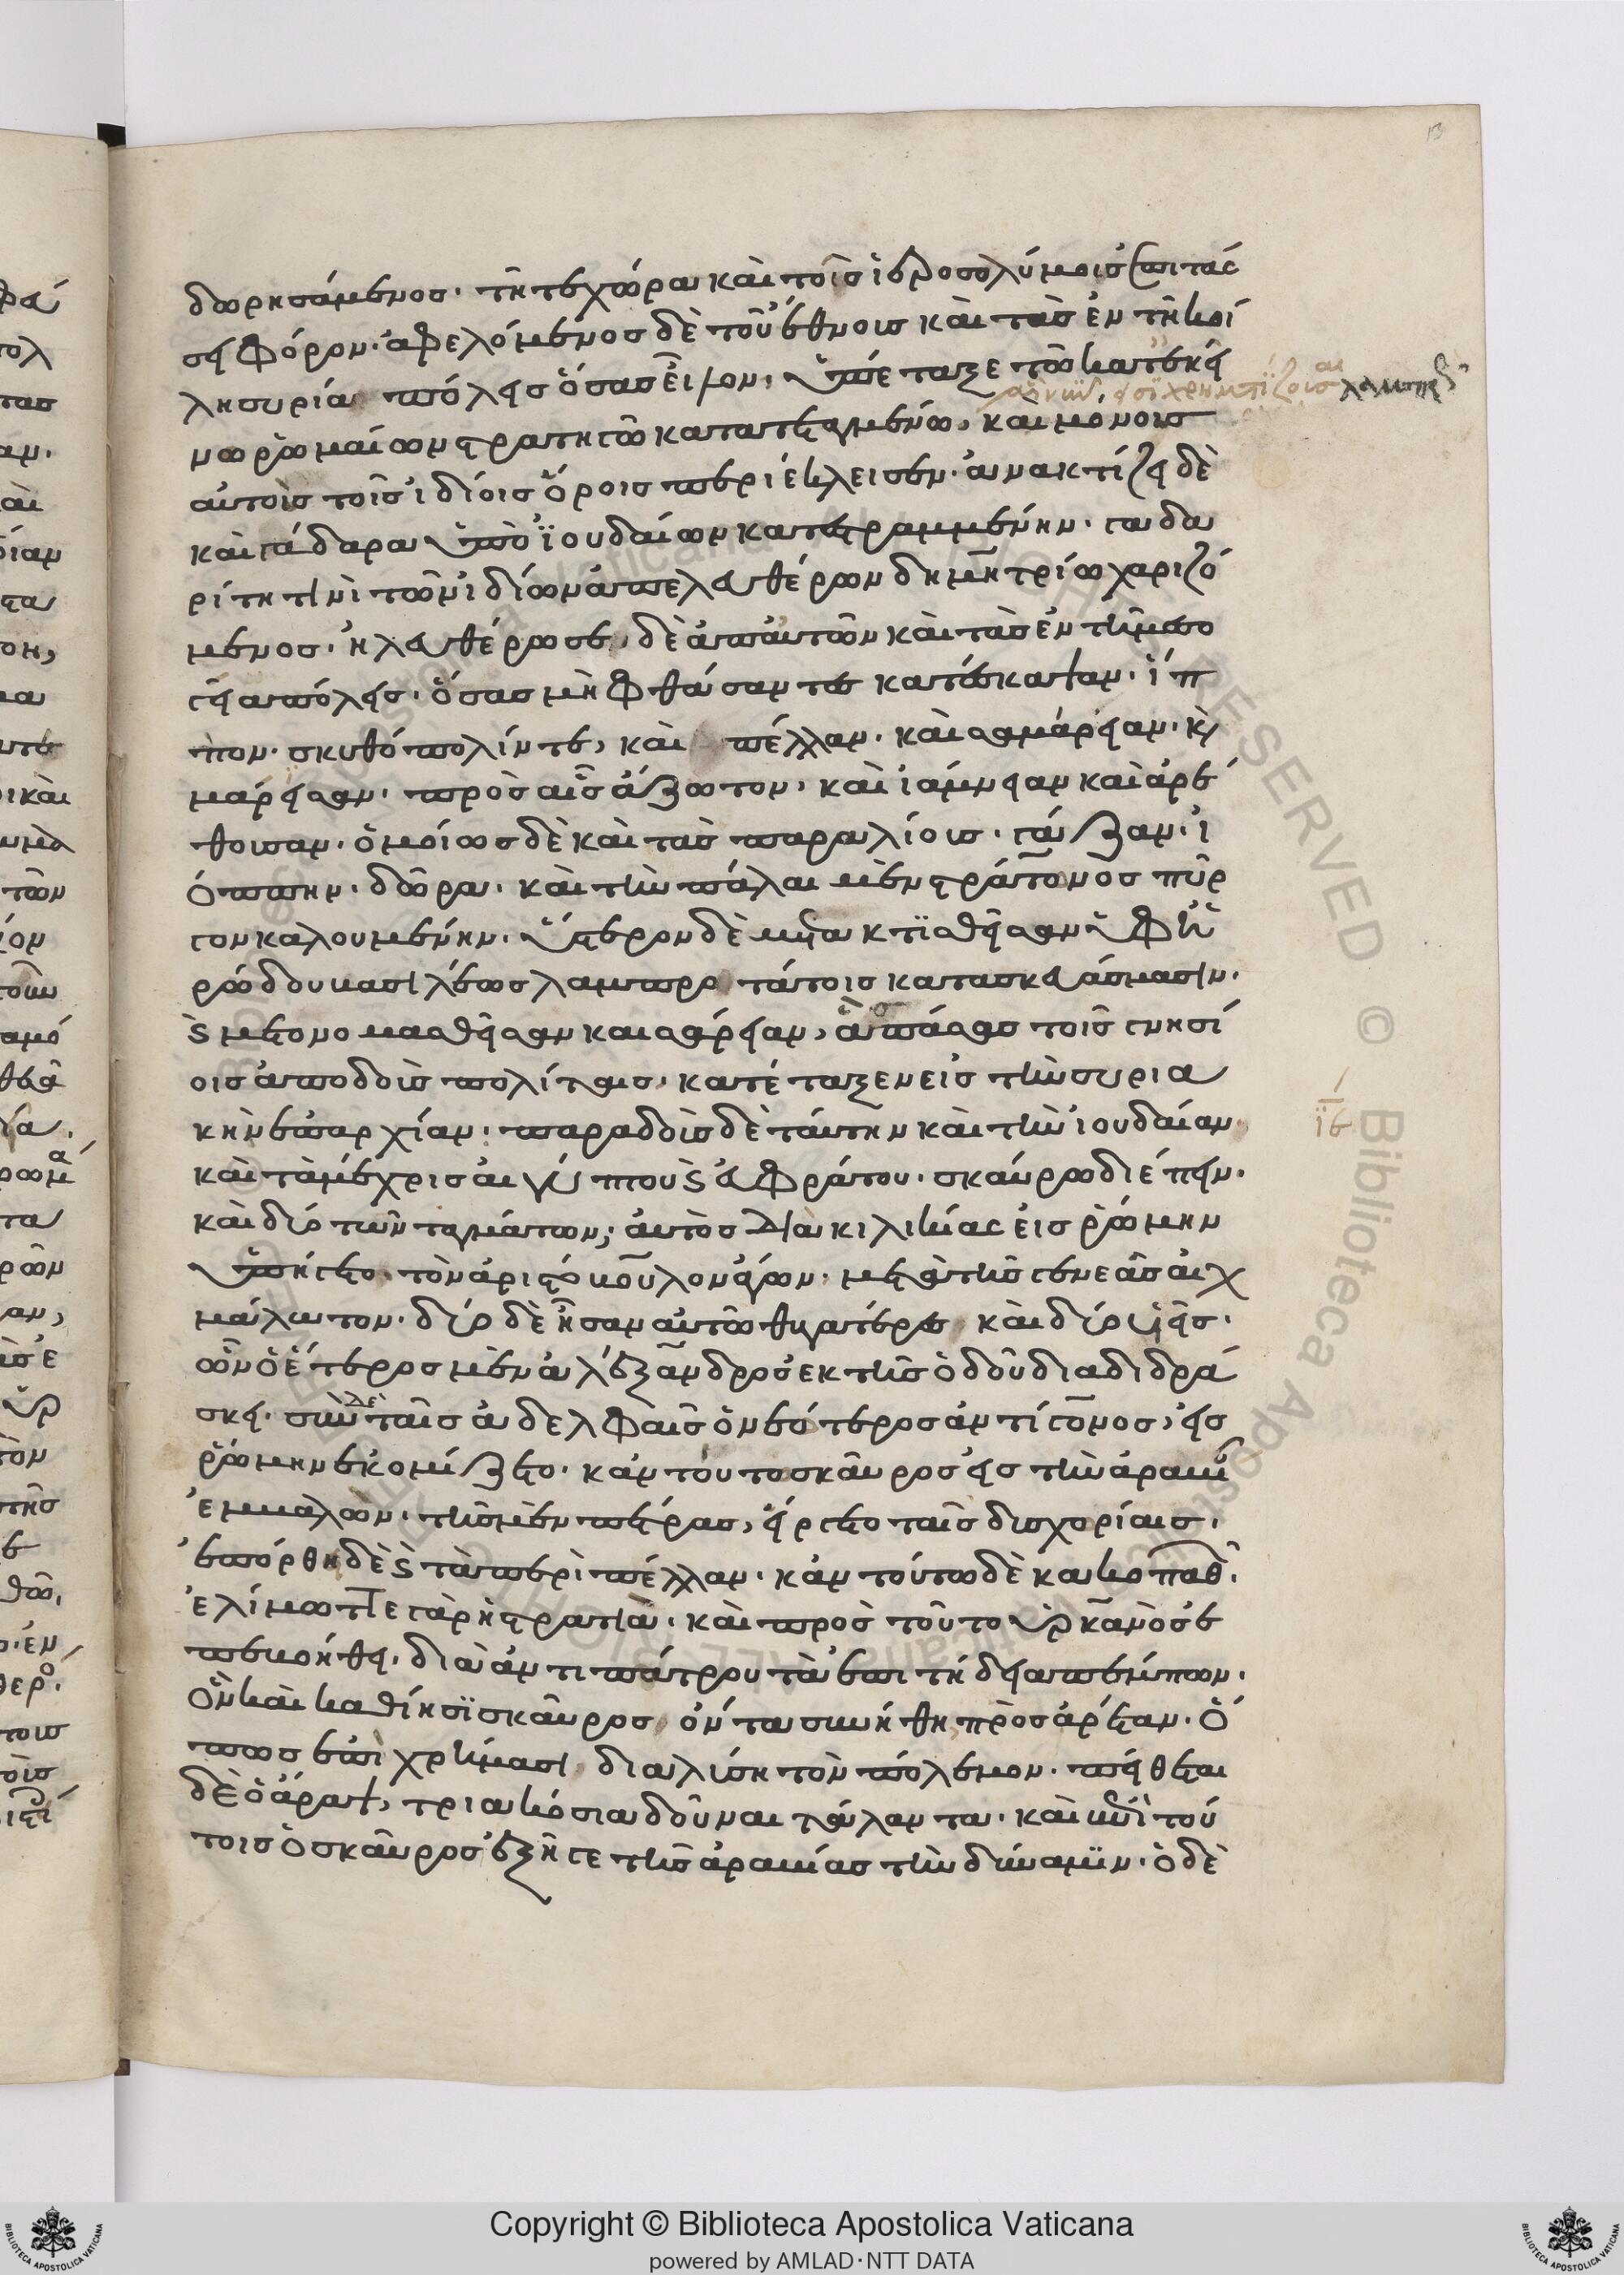 13
δωρησάμενος· τῆ τε χώρα καὶ τοῖς ἱεροσολύμοις ἐπιτάσ
σει φόρον· ἀφελόμενος δὲ τοῦ ἔθνους καὶ τὰς ἐν τῆ κοί
λη συρία πόλεις ὅσας εἷλον, ὑπέταξε τῶ κατ' ἐκεῖ
νω ῥωμαίων στρατηγῶ κατατεταγμένω, και μόνοις
αὐτοὺς τοῖς ἰδίοις ὅροις περιέκλεισεν· ἀνακτίζει δὲ
καὶ γάδαρα ὑπὸ ἰουδαίων κατεστραμμένην· γαδα
ρίτη τινὶ τῶν ἰδίων ἀπελευθέρων δημητρίω χαριζό
μενος· ἠλευθέρωσε δὲ ἀπ' αὐτῶν καὶ τὰς ἐν τῆ μεσο
γεία πόλεις· ὅσας μὴ φθάσαντες κατέσκαψαν· ἵπ
πον· σκυθόπολίν τε, καὶ πέλλαν· καὶ σαμάρειαν· κὶ
μάρεισαν· πρὸς αἷς ἄζωτον, καὶ ἰάμνειαν καὶ ἀρέ
θουσαν· ὁμοίως δὲ καὶ τὰς παραλίους· γάζαν· ἰ
όππην· δῶρα· καὶ τὴν πάλαι μὲν στράτωνος πύρ
γον καλουμένην· ὕστερον δὲ μετακτισθεῖσαν ὑφ' ἡ
ρώδου βασιλέως λαμπροτάτοις κατασκευάσμασιν·
ϛ μετονομασθεῖσαν καισάρειαν, ἃς πάσας τοῖς γνησί
οις ἀποδοὺς πολίταις, κατέταξεν εἰς τὴν συρια
κὴν ἐπαρχίαν· παραδοὺς δὲ ταύτην καὶ τὴν ἰουδαίαν
καὶ τὰ μέχρις αἰγύπτου ϛ εὐφράτου· σκαύρω διέπειν·
καὶ δύο τῶν ταγμάτων, αὐτὸς διὰ κιλικίας εἰς ῥώμην
ἠπείγετο· τὸν ἀριστόβουλον ἄγων· μετὰ τῆς γενεᾶς αἰχ
μάλωτον· δύο δὲ ἦσαν αὐτῶ θυγατέρες καὶ δύο υἱεῖς·
ὧν ὁ ἕτερος μὲν ἀλέξανδρος ἐκ τῆς ὁδοῦ διαδιδρά
σκει· σὺν δὲ ταῖς ἀδελφαῖς ὁ νεώτερος ἀντίγονος, εἰς
ῥώμην ἐκομίζετο· κἀν τούτω σκαῦρος εἰς τὴν ἀραβί
ἐμβαλὼν· τῆς μὲν πέτρας, εἴργετο ταῖς δυσχορίαις·
ἐπόρθει δὲ ϛ τὰ περὶ πέλλαν· κἀν τούτω δὲ κακοπαθ
ἐλίμωττε γὰρ ἡ στρατιὰ· καὶ πρὸς τοῦτο ὑρκανὸς ἐ
πεβοήθει· διὰ ἀντιπάτρου τὰ ἐπιτήδεια πέμπων·
ὃν καὶ καθίησι σκαῦρος ὄντα συνήθη πρὸς ἀρέταν· ὅ
πως ἐπὶ χρήμασι διαλύση τὸν πόλεμον· πείθεται
δὲ ὁ ἄραψ, τριακόσια δοῦναι τάλαντα· καὶ ἐπὶ τού
τοις ὁ σκαῦρος ἐξῆγε τῆς ἀραβίας τὴν δύναμιν· ὁ δὲ
Copyright © Biblioteca Apostolica Vaticana
powered by AMLAD·NTT DATA